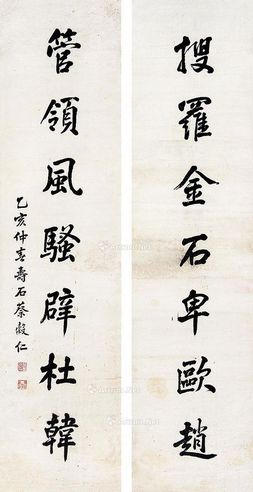 搜羅金石卑歐趙
管領風騷辟杜韓
乙亥仲春壽石蔡穀仁